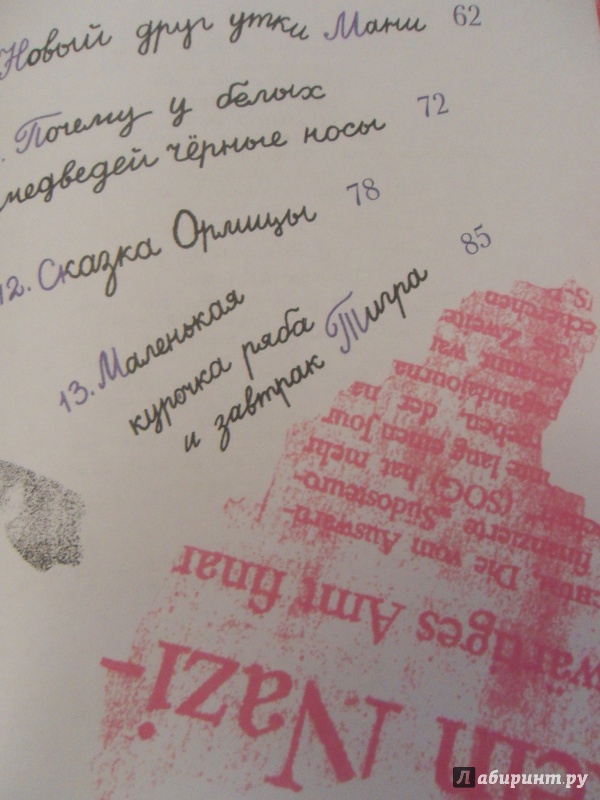 Новый друг утки Мани 62
. Почему у белых
медведей чёрные носы 72
12. Сказка Орлицы 78
13. Маленькая
курочка ряба
и завтрак Тигра 85
tem Nazi-
wärtiges Amt finan
Die vom Auswärti-
finanzierte "Südosteuro-
(SOG) hat mehr
lang einen Jour
geben, der na
pagandajourna
bekannt war
die Zweite
echerchen
Лабиринт.ру